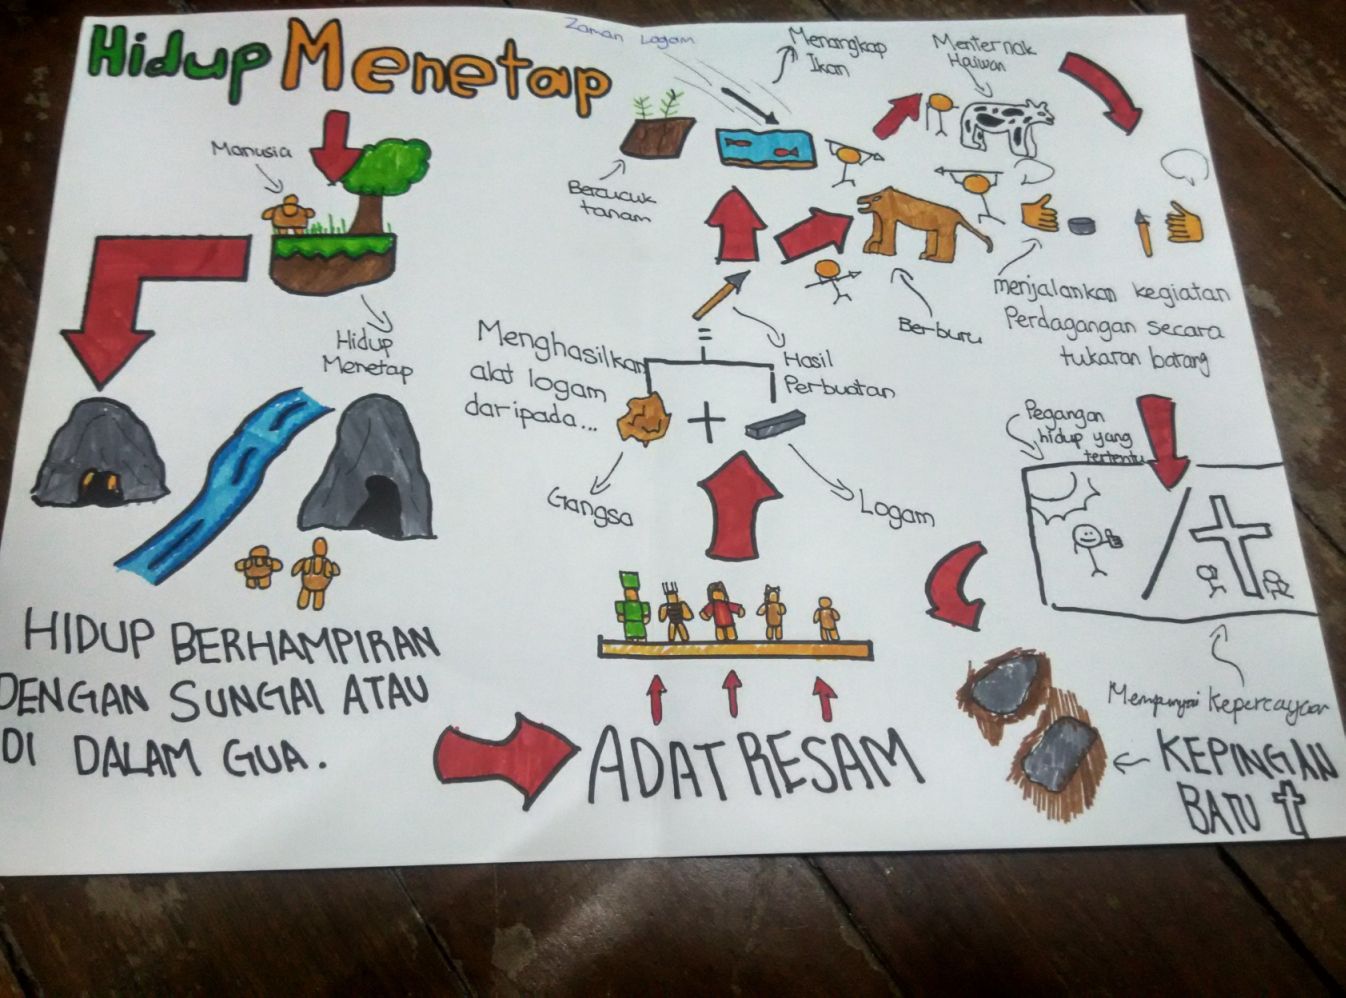 Hidup Menetap
Zaman Logam
Menangkap
Ikan
Menternak
Haiwan
Manusia
Bercucuk
tanam
Hidup
Menetap
Menghasilkan
alat logam
daripada...
=
Hasil
Perbuatan
+
Gangsa
Logam
Berburu
menjalankan kegiatan
Perdagangan secara
tukaran barang
Pegangan
hidup yang
tertentu
Mempunyai Kepercayaan
HIDUP BERHAMPIRAN
DENGAN SUNGAI ATAU
DI DALAM GUA.
ADAT RESAM
KEPINGAN
BATU